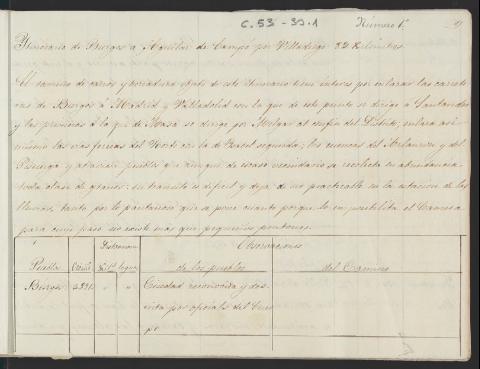 C.53-39.1
Número 1º
Itinerario de Burgos a Aguilar de Campo por Villadiego 82 kilometros
El camino de carros y herradura objeto de este Itinerario tiene interes por enlazar las carrete
ras de Burgos á Madrid y Valladolid con la que de este punto se dirige a Santander
y las primeras á la que de Masa se dirige por Melgar al confin del Distrito, enlaza asi
mismo las vias ferreas del Norte con la de segunda; las cuencas del Arlanzon y del
Pisuerga y atraviesa pueblos que aunque de escaso vecindario se recolecta en abundancia
toda clase de granos: su transito es dificil y deja de ser practicable en la estacion de las
lluvias, tanto por lo pantanoso que se pone cuanto porque lo imposibilita el
para cuyo paso no existe mas que pequeños pontones.
Distancia
Observaciones
Pueblos
Kilº
legua
de los pueblos
del Camino
Burgos
Ciudad reconocida y des
crita por oficiales del Cuer
po.